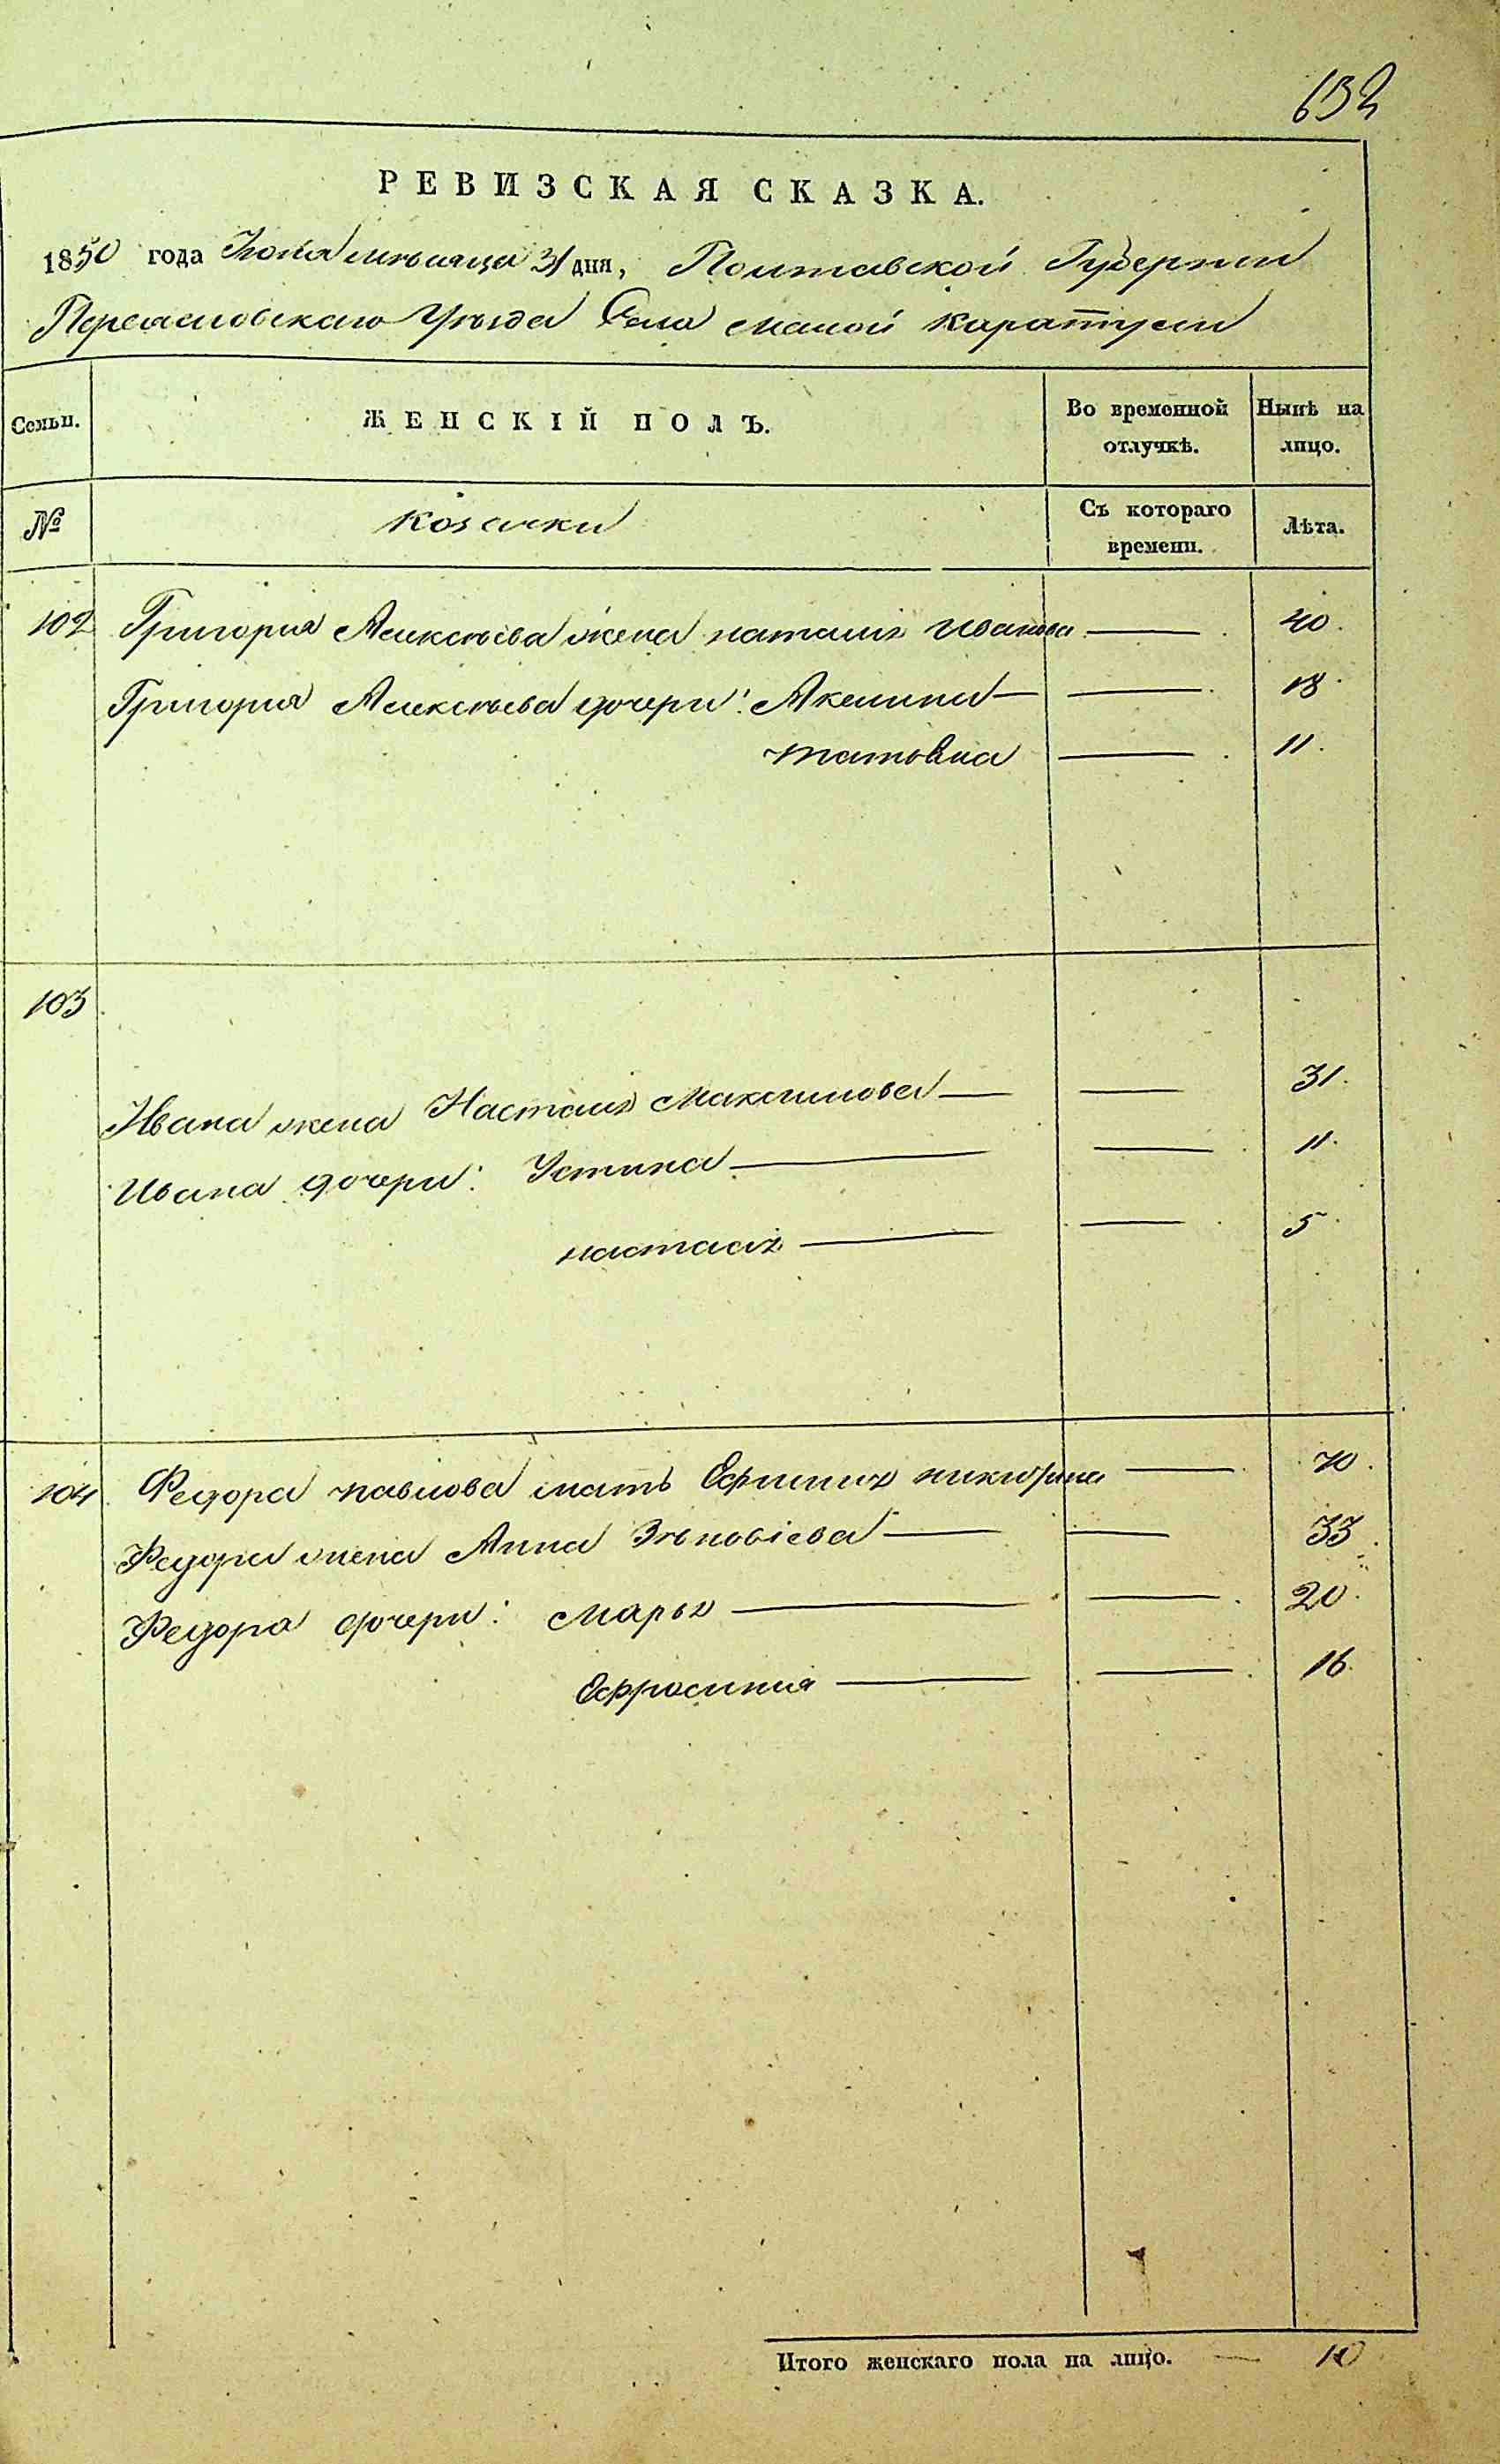 632
РЕВИЗСКАЯ СКАЗКА.
1850 года мѣсяца 31 дня, Полтавской Губернии
Переяславскаго Уѣзда Села малой Каратули
Семьи. ЖЕНСКІЙ ПОЛЪ. Во временной отлучкѣ. Нынѣ на лицо.
№ Козачки Съ котораго времени. Лѣта.
102 Григория Алексѣева жена наталия Иванова — 40.
Григория Алексѣева дочери: Акелина — 18.
татьяна — 11.
103
Ивана жена Максимова — 31.
Ивана дочери: Устина — 11.
настасия — 5.
104 Федора павлова мать — 70.
Федора жена Анна Зѣновіева — 33.
Федора дочери: Марья — 20.
Ефросиния — 16.
Итого женскаго пола на лицо. — 10